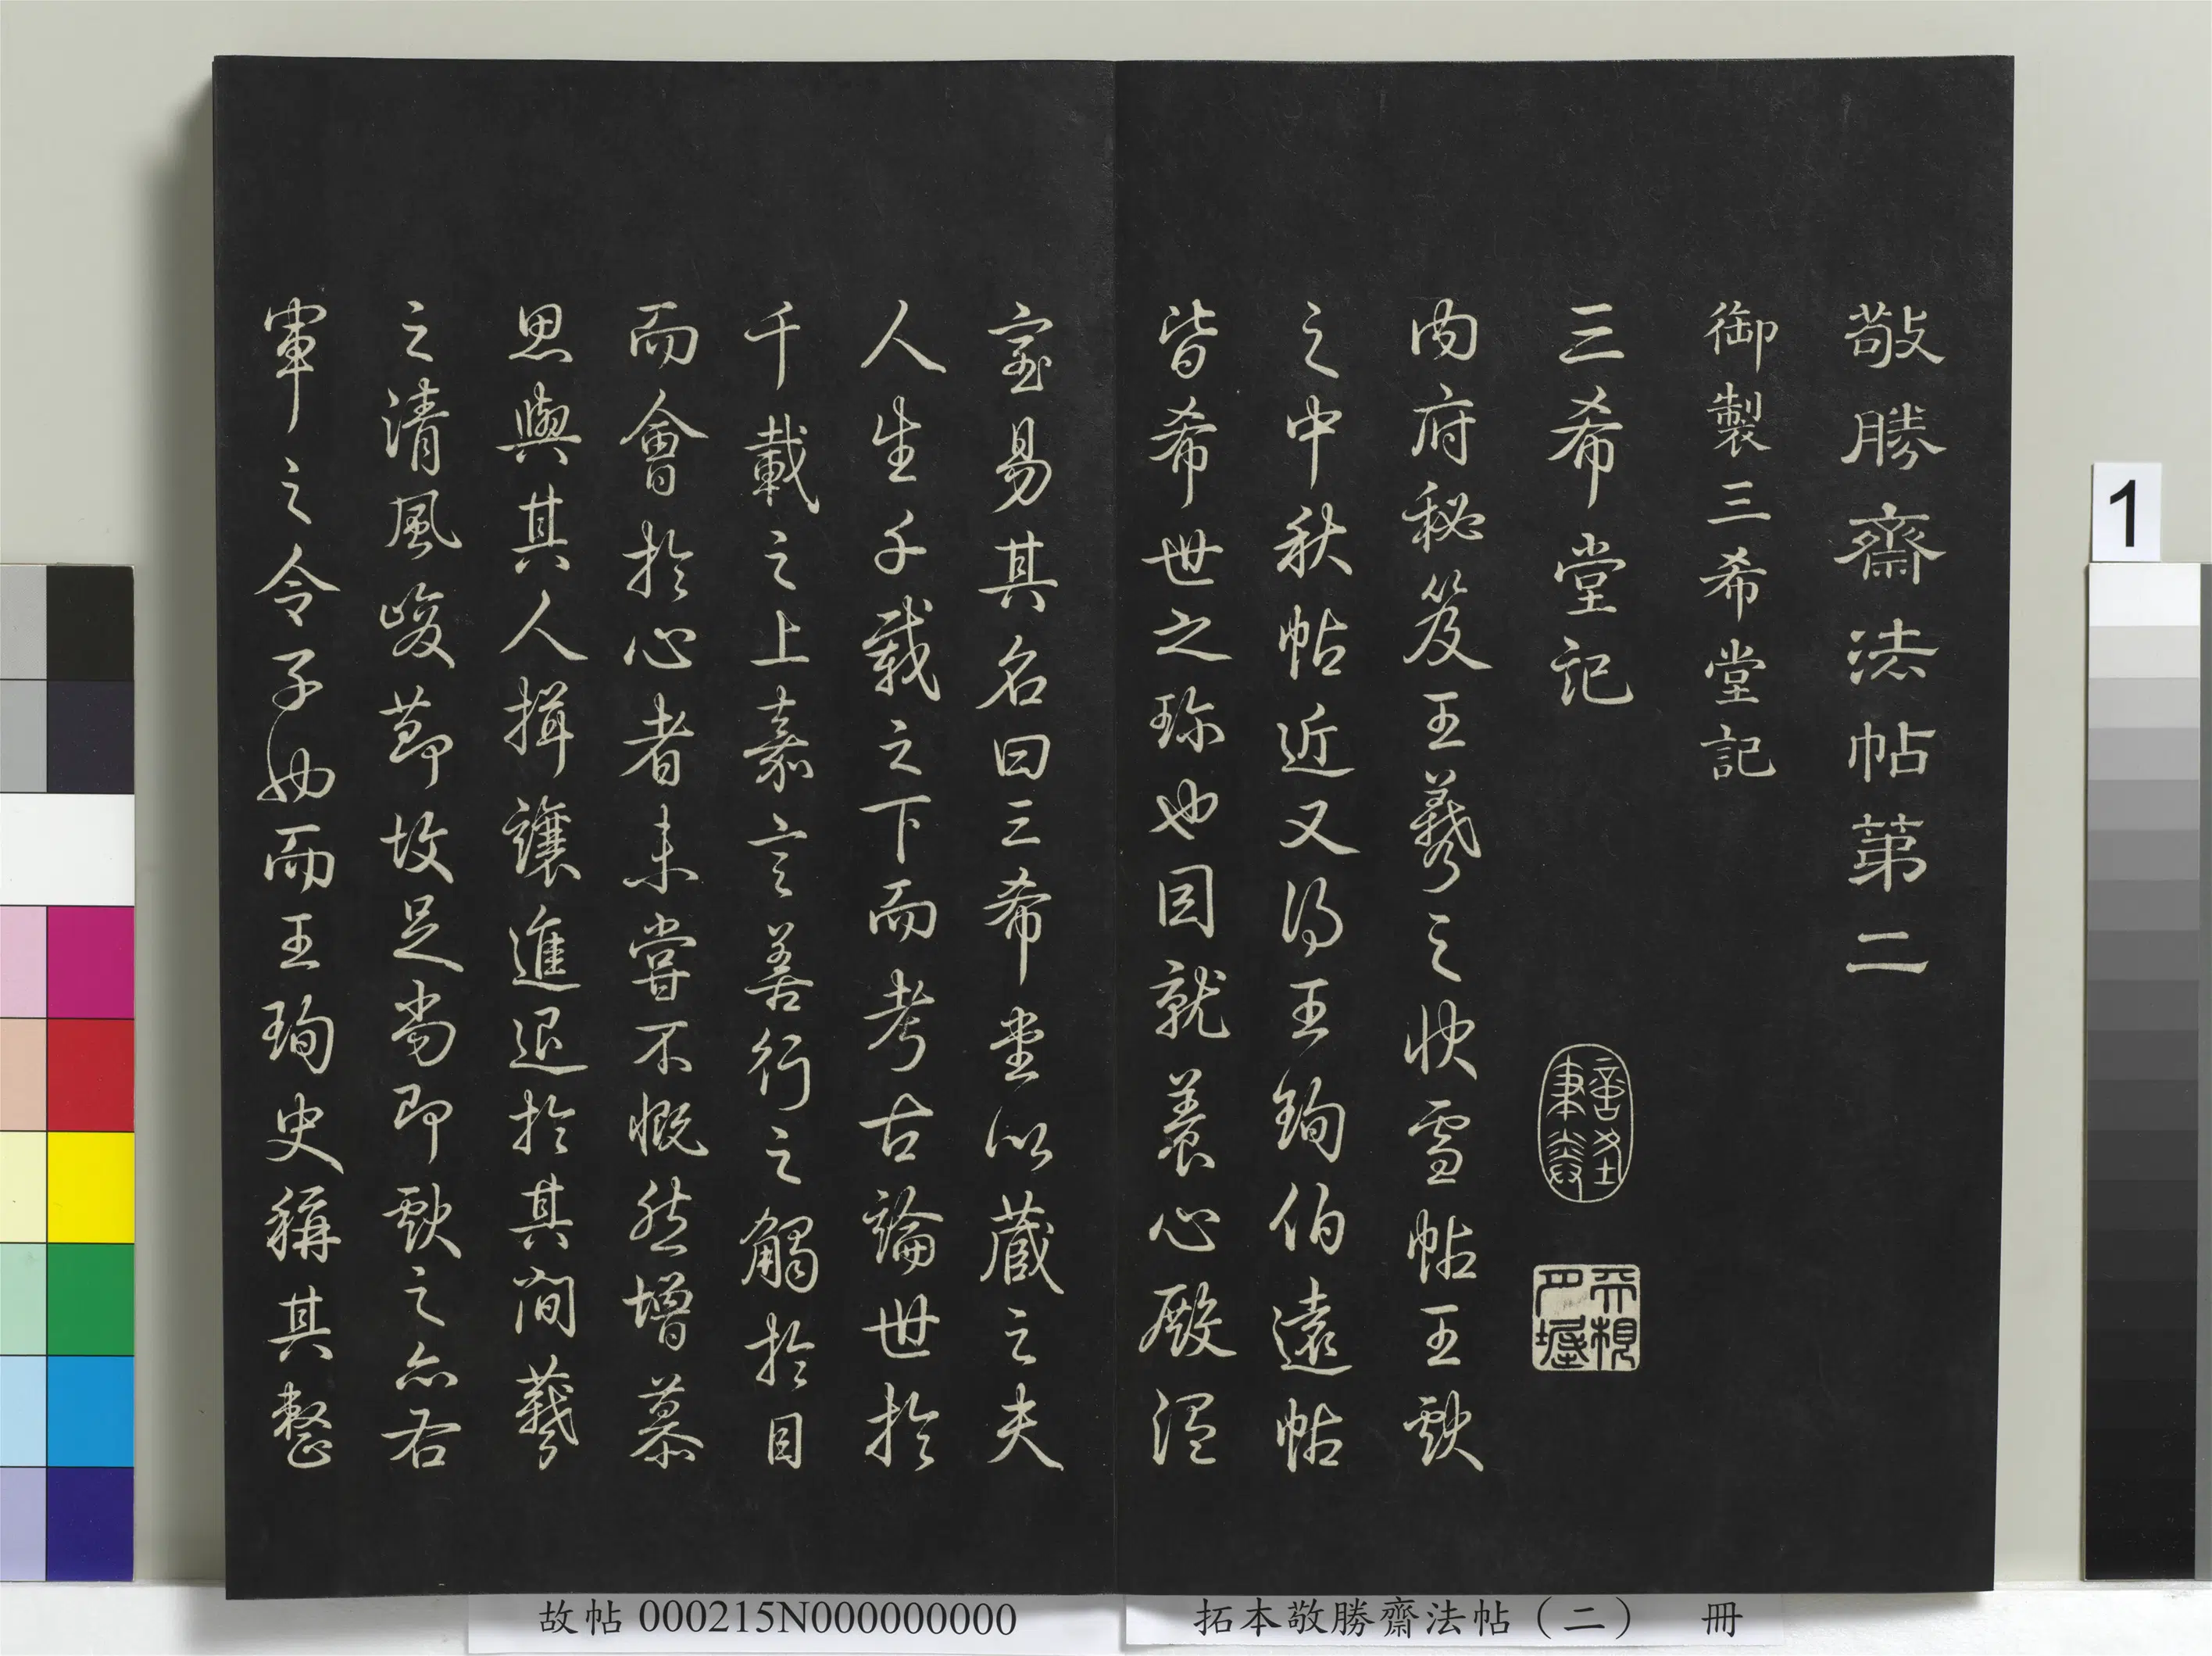 敬勝齋法帖第二
御製三希堂記
三希堂記
内府秘笈王羲之快雪帖王獻
之中秋帖近又得王珣伯遠帖
皆希世之珎也因就養心殿温
室易其名曰三希堂以藏之夫
人生千載之下而考古論世於
千載之上嘉言善行之觸於目
而會於心者未嘗不慨然增慕
思與其人揖讓進退於其間羲
之清風峻節故足尚即獻之亦右
軍之令子也而王珣史稱其整
1
拓本敬勝齋法帖(二) 冊
故帖 000215N000000000